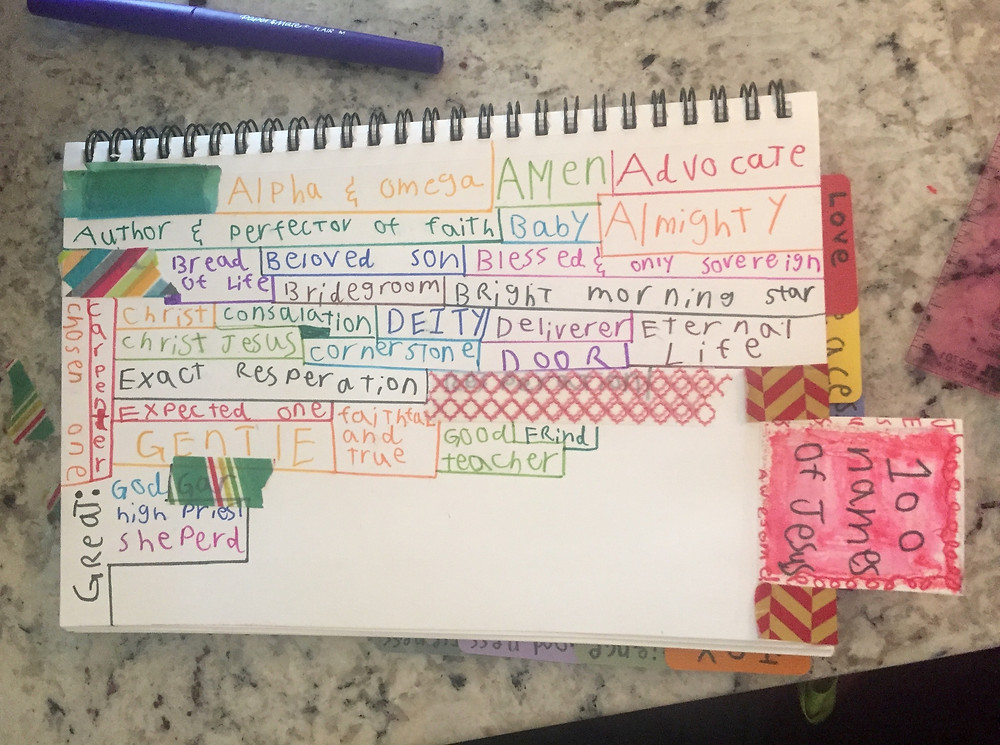 PaperMate FLAIR M
Alpha & omega
AMen
Advocate
Author & perfector of faith
Baby
Almighty
Bread of Life
Beloved son
Blessed & only sovereign
Bridegroom
BRight morning star
chosen one
carpenter
christ
consalation
DEITY
Deliverer
Eternal Life
christ Jesus
cornerstone
DOOR
Exact Resperation
Expected one
faithful and true
GENTlE
GOOD teacher
FRind
GReat:
God
high Priest
sheperd
100
names
of Jesus
Awesome
Love
JOY